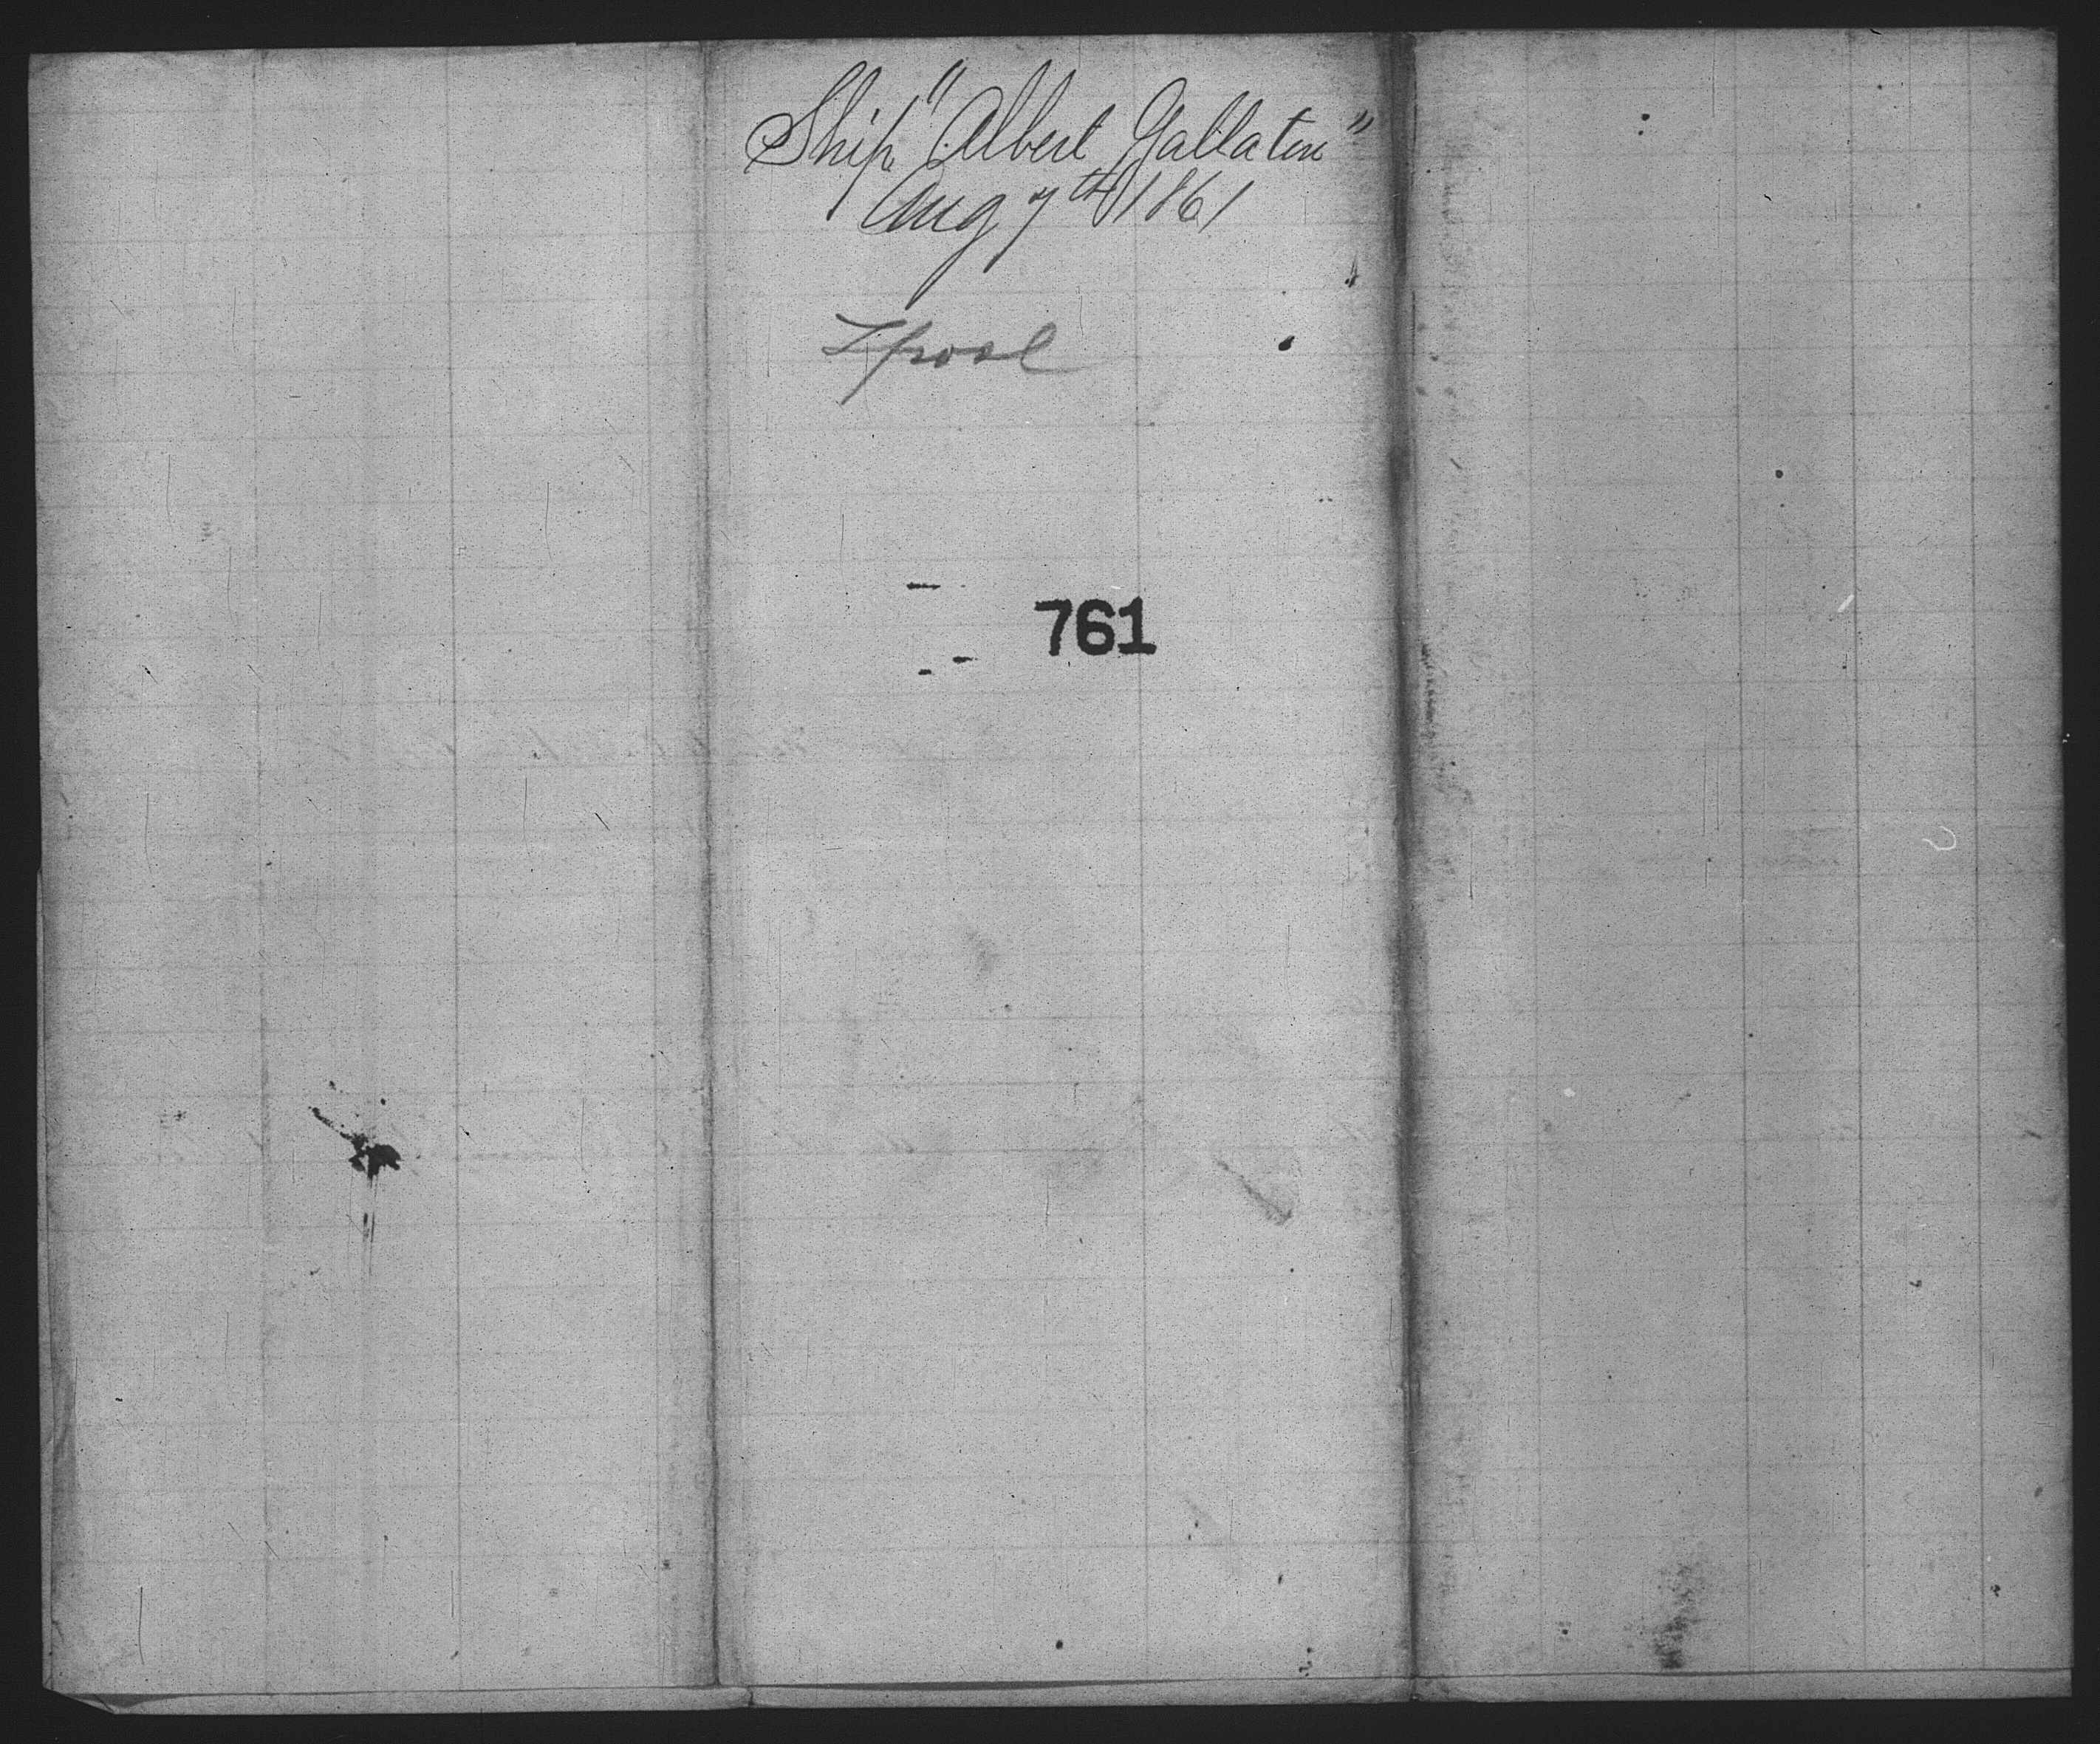 Ship "Albert Gallatin"
Aug 7th 1861
Lpool
761